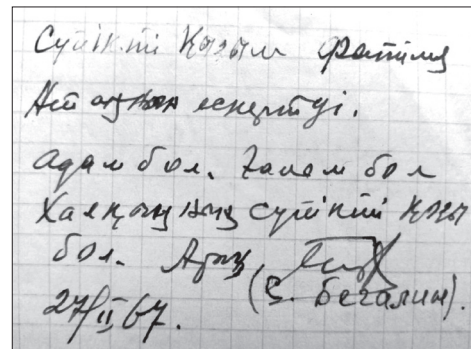 Сүйікті Қызым Фатима
Ата ескертуі.
Адам бол. Ғалам бол
Халқыңның сүйікті қызы
бол.
(С. Бегалин).
27/II 67.